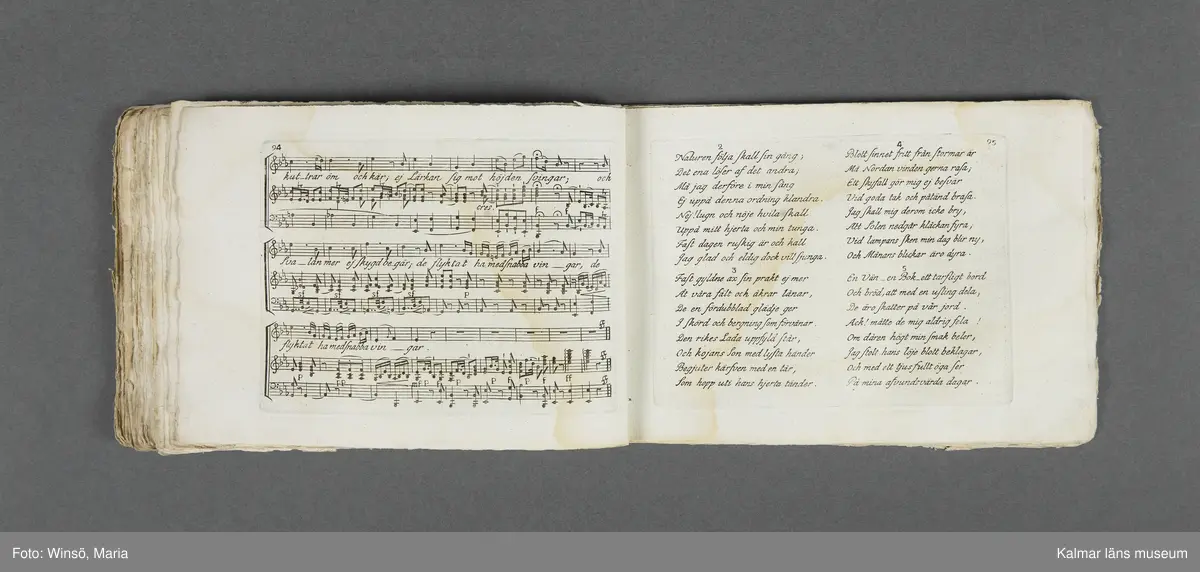 94
kut_trar om och kär; ej Lärkan sig mot höjden svingar; och
cres
Sva_lan mer ej skygd begär; de flyktat ha med snabba vin_gar, de
sf sf
flyktat ha med snabba vin_gar
P P P F ff
95
2
Naturen följa skall sin gång;
Det ena löser af det andra;
Må jag derföre i min sång
Ej uppå denna ordning klandra.
Nej! lugn och nöje hvila skall
Uppå mitt hjerta och min tunga.
Fast dagen ruskig är och kall
Jag glad och eldig dock vill sjunga.
3
Fast gyldne ax sin prakt ej mer
Åt våra fält och åkrar lånar,
De en fördubblad glädje ger
I skörd och bergning som förvånar.
Den rikes Lada uppfyld står,
Och kojans son med lyfta händer
Begjuter kärfven med en tår,
Som hopp uti hans hjerta tänder.
4
Blott sinnet fritt från stormar är
Må Nordan vinden gerna rasa;
Ett skyfall gör mig ej besvär
Vid goda tak och påtänd brasa.
Jag skall mig derom icke bry,
Att Solen nedgår klåckan fyra,
Vid lampans sken min dag blir ny,
Och Månans blickar äro dyra.
5
En Vän_en Bok_ett tarfligt bord
Och bröd, att med en usling dela,
De äro skatter på vår jord.
Ack! måtte de mig aldrig fela!
Om dåren högt min smak beler,
Jag stolt hans löje blott beklagar,
Och med ett ljusfullt öga ser
På mina afvundsvärda dagar.
Foto: Winsö, Maria
Kalmar läns museum